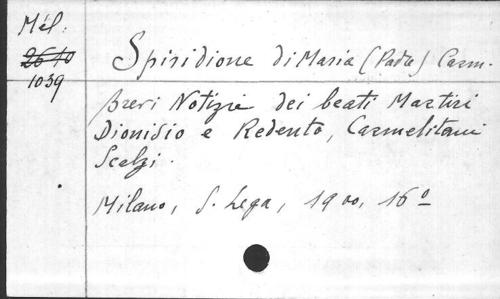 Mél.
2610
1039
Spiridione di Maria (Padre) Carm.
Brevi Notizie dei beati Martiri
Dionisio e Redento, Carmelitani
Scalzi.
Milano, S. Lega, 1900, 16º